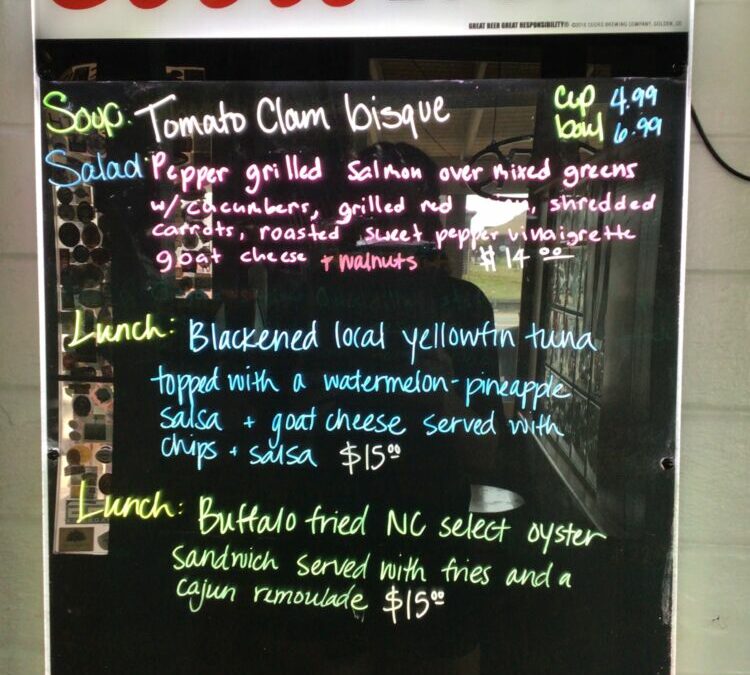 GREAT BEER GREAT RESPONSIBILITY® ©2014 COORS BREWING COMPANY, GOLDEN, CO
Soup: Tomato Clam bisque
cup 4.99
bowl 6.99
Salad: Pepper grilled Salmon over mixed greens
w/ cucumbers, grilled red onion, shredded
carrots, roasted sweet pepper vinaigrette
goat cheese + walnuts $14.00
Lunch: Blackened local yellowfin tuna
topped with a watermelon-pineapple
salsa + goat cheese served with
chips + salsa $15.00
Lunch: Buffalo fried NC select oyster
sandwich served with fries and a
cajun remoulade $15.00